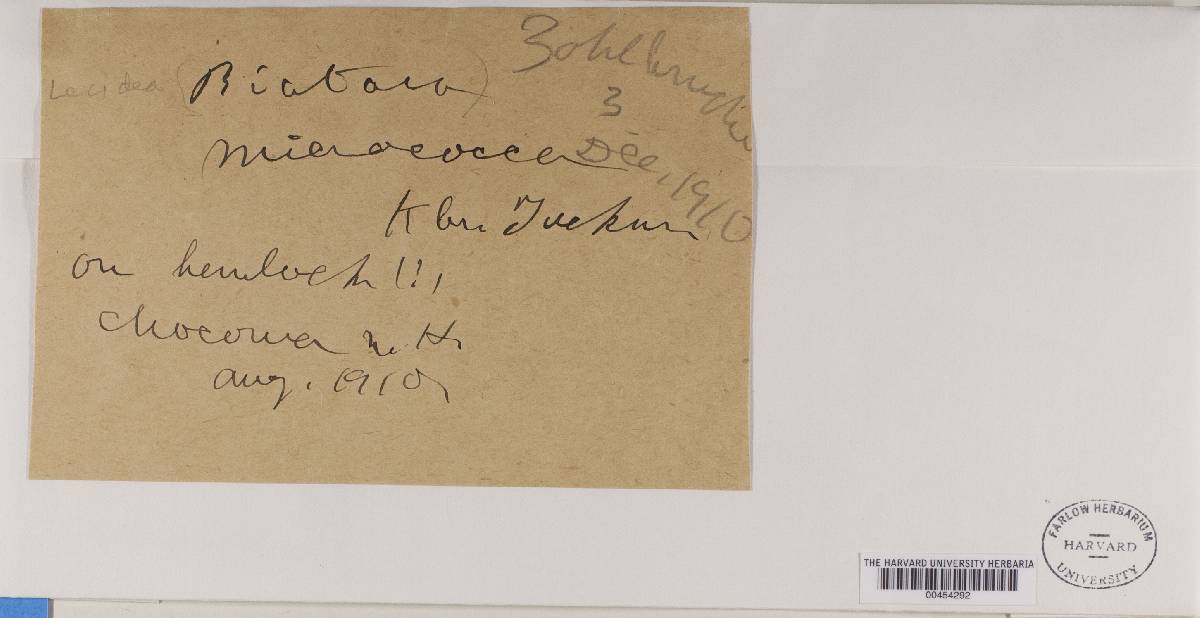 Lecidea (Biatora)
Zahlbruckn
3
micrococca
Dec, 1910
Kbr. Tuckm.
on hemlock!!!
Chocorua N. H.
Aug. 1910.
FARLOW HERBARIUM
HARVARD
UNIVERSITY
THE HARVARD UNIVERSITY HERBARIA
00454292